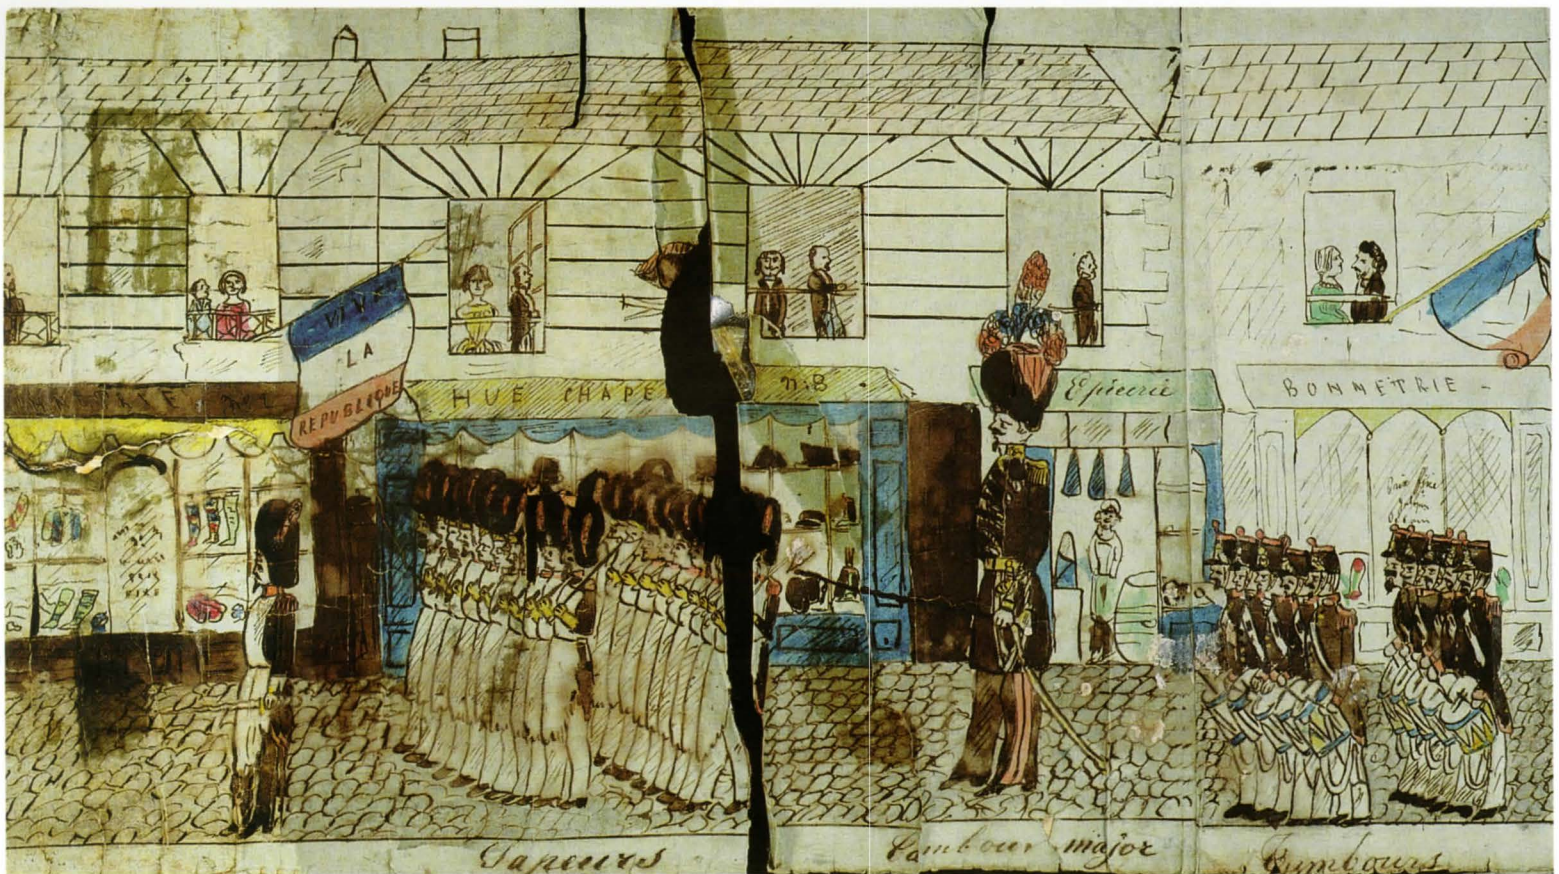 VIVE
LA
REPUBLIQUE
HUE CHAPE
N.B
Epicerie
BONNETRIE -
Sapeurs
tambour major
Tambours